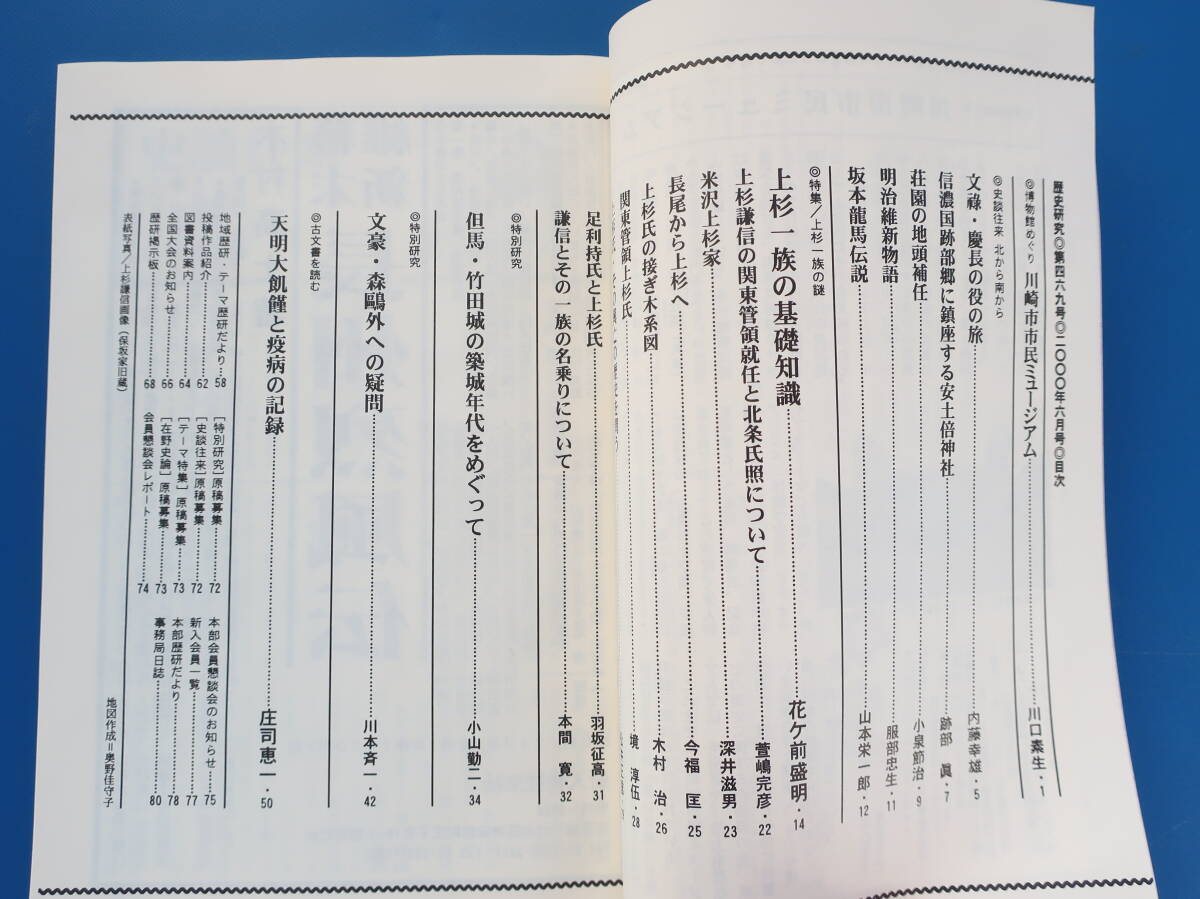 歴史研究◎第四六九号◎二〇〇〇年六月号◎目次
◎博物館めぐり 川崎市市民ミュージアム……川口素生・1
◎史談往来 北から南から
文祿・慶長の役の旅……内藤幸雄・5
信濃国跡部郷に鎮座する安土倍神社……跡部 眞・7
荘園の地頭補任……小泉節治・9
明治維新物語……服部忠生・11
坂本龍馬伝説……山本栄一郎・12
◎特集/上杉一族の謎
上杉一族の基礎知識……花ケ前盛明・14
上杉謙信の関東管領就任と北条氏照について……萱嶋完彦・22
米沢上杉家……深井滋男・23
長尾から上杉へ……今福 匡・25
上杉氏の接ぎ木系図……木村 治・26
関東管領上杉氏……境 淳伍・28
足利持氏と上杉氏……羽坂征高・31
謙信とその一族の名乗りについて……本間 寛・32
◎特別研究
但馬・竹田城の築城年代をめぐって……小山勤二・34
◎特別研究
文豪・森鷗外への疑問……川本斉一・42
◎古文書を読む
天明大飢饉と疫病の記録……庄司恵一・50
地域歴研・テーマ歴研だより……58
投稿作品紹介……62
図書資料案内……64
全国大会のお知らせ……66
歴研掲示板……68
[特別研究]原稿募集……72
[史談往来]原稿募集……72
[テーマ特集]原稿募集……73
[在野史論]原稿募集……73
会員懇談会レポート……74
本部会員懇談会のお知らせ……75
新入会員一覧……77
本部歴研だより……78
事務局日誌……80
表紙写真/上杉謙信画像(保坂家旧蔵)
地図作成=奥野佳守子